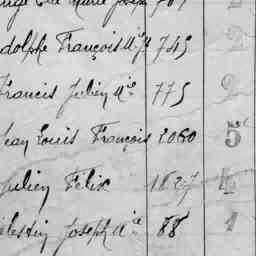 Marie Joseph
dolphe François M 745 2
Francis Julien Me 775 2
Jean Louis François 2060 5
Julien Felix 1627 4
elestin Joseph Me 88 1